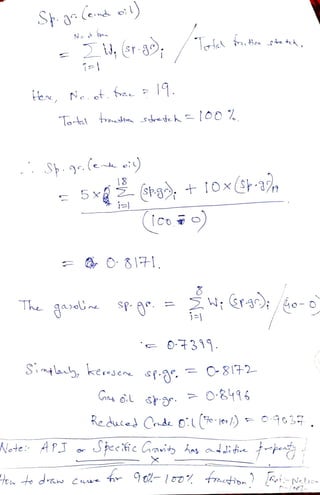 Sp. gr. (crude oil)
No. of frac
= Σ Wi (sp.gr)i / Total fraction stretch.
i=1
Here, No. of. frac = 19.
Total fraction stretch = 100 %
∴ Sp. gr. (crude oil)
= 5 × Σ (sp.gr)i + 10 × (sp.gr)19
18
i=1
(100 - 0)
= 0.8171.
The gasoline sp. gr. = Σ Wi (sp.gr)i / (40-0)
8
i=1
= 0.7399.
Similarly, kerosene sp.gr. = 0.8172
Gas oil sp.gr. = 0.8496
Reduced Crude Oil = 0.9037.
Note:- API or Specific Gravity has additive property
×
How to draw curve for 90%-100% fraction?